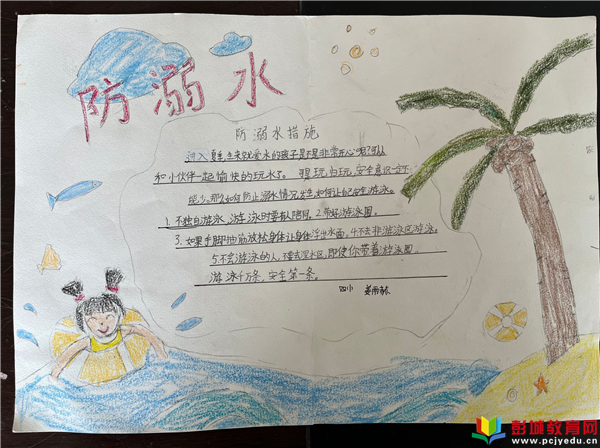 防溺水
防溺水措施
进入夏季,生来就爱水的孩子是不是非常开心呢?可以
和小伙伴一起愉快的玩水了。 玩归玩,安全意识一定不
能少。那么如何防止溺水情况发生如何让自己安全游泳。
1.不独自游泳,游泳时要有人陪同。2.带好游泳圈。
3.如果手脚抽筋放松身体让身体浮出水面。4.不去非游泳区游泳。
5.不会游泳的人,不要去深水区,即使你带着游泳圈。
游泳千万条,安全第一条。
四小 姜雨
彭城教育网
www.pcjyedu.cn